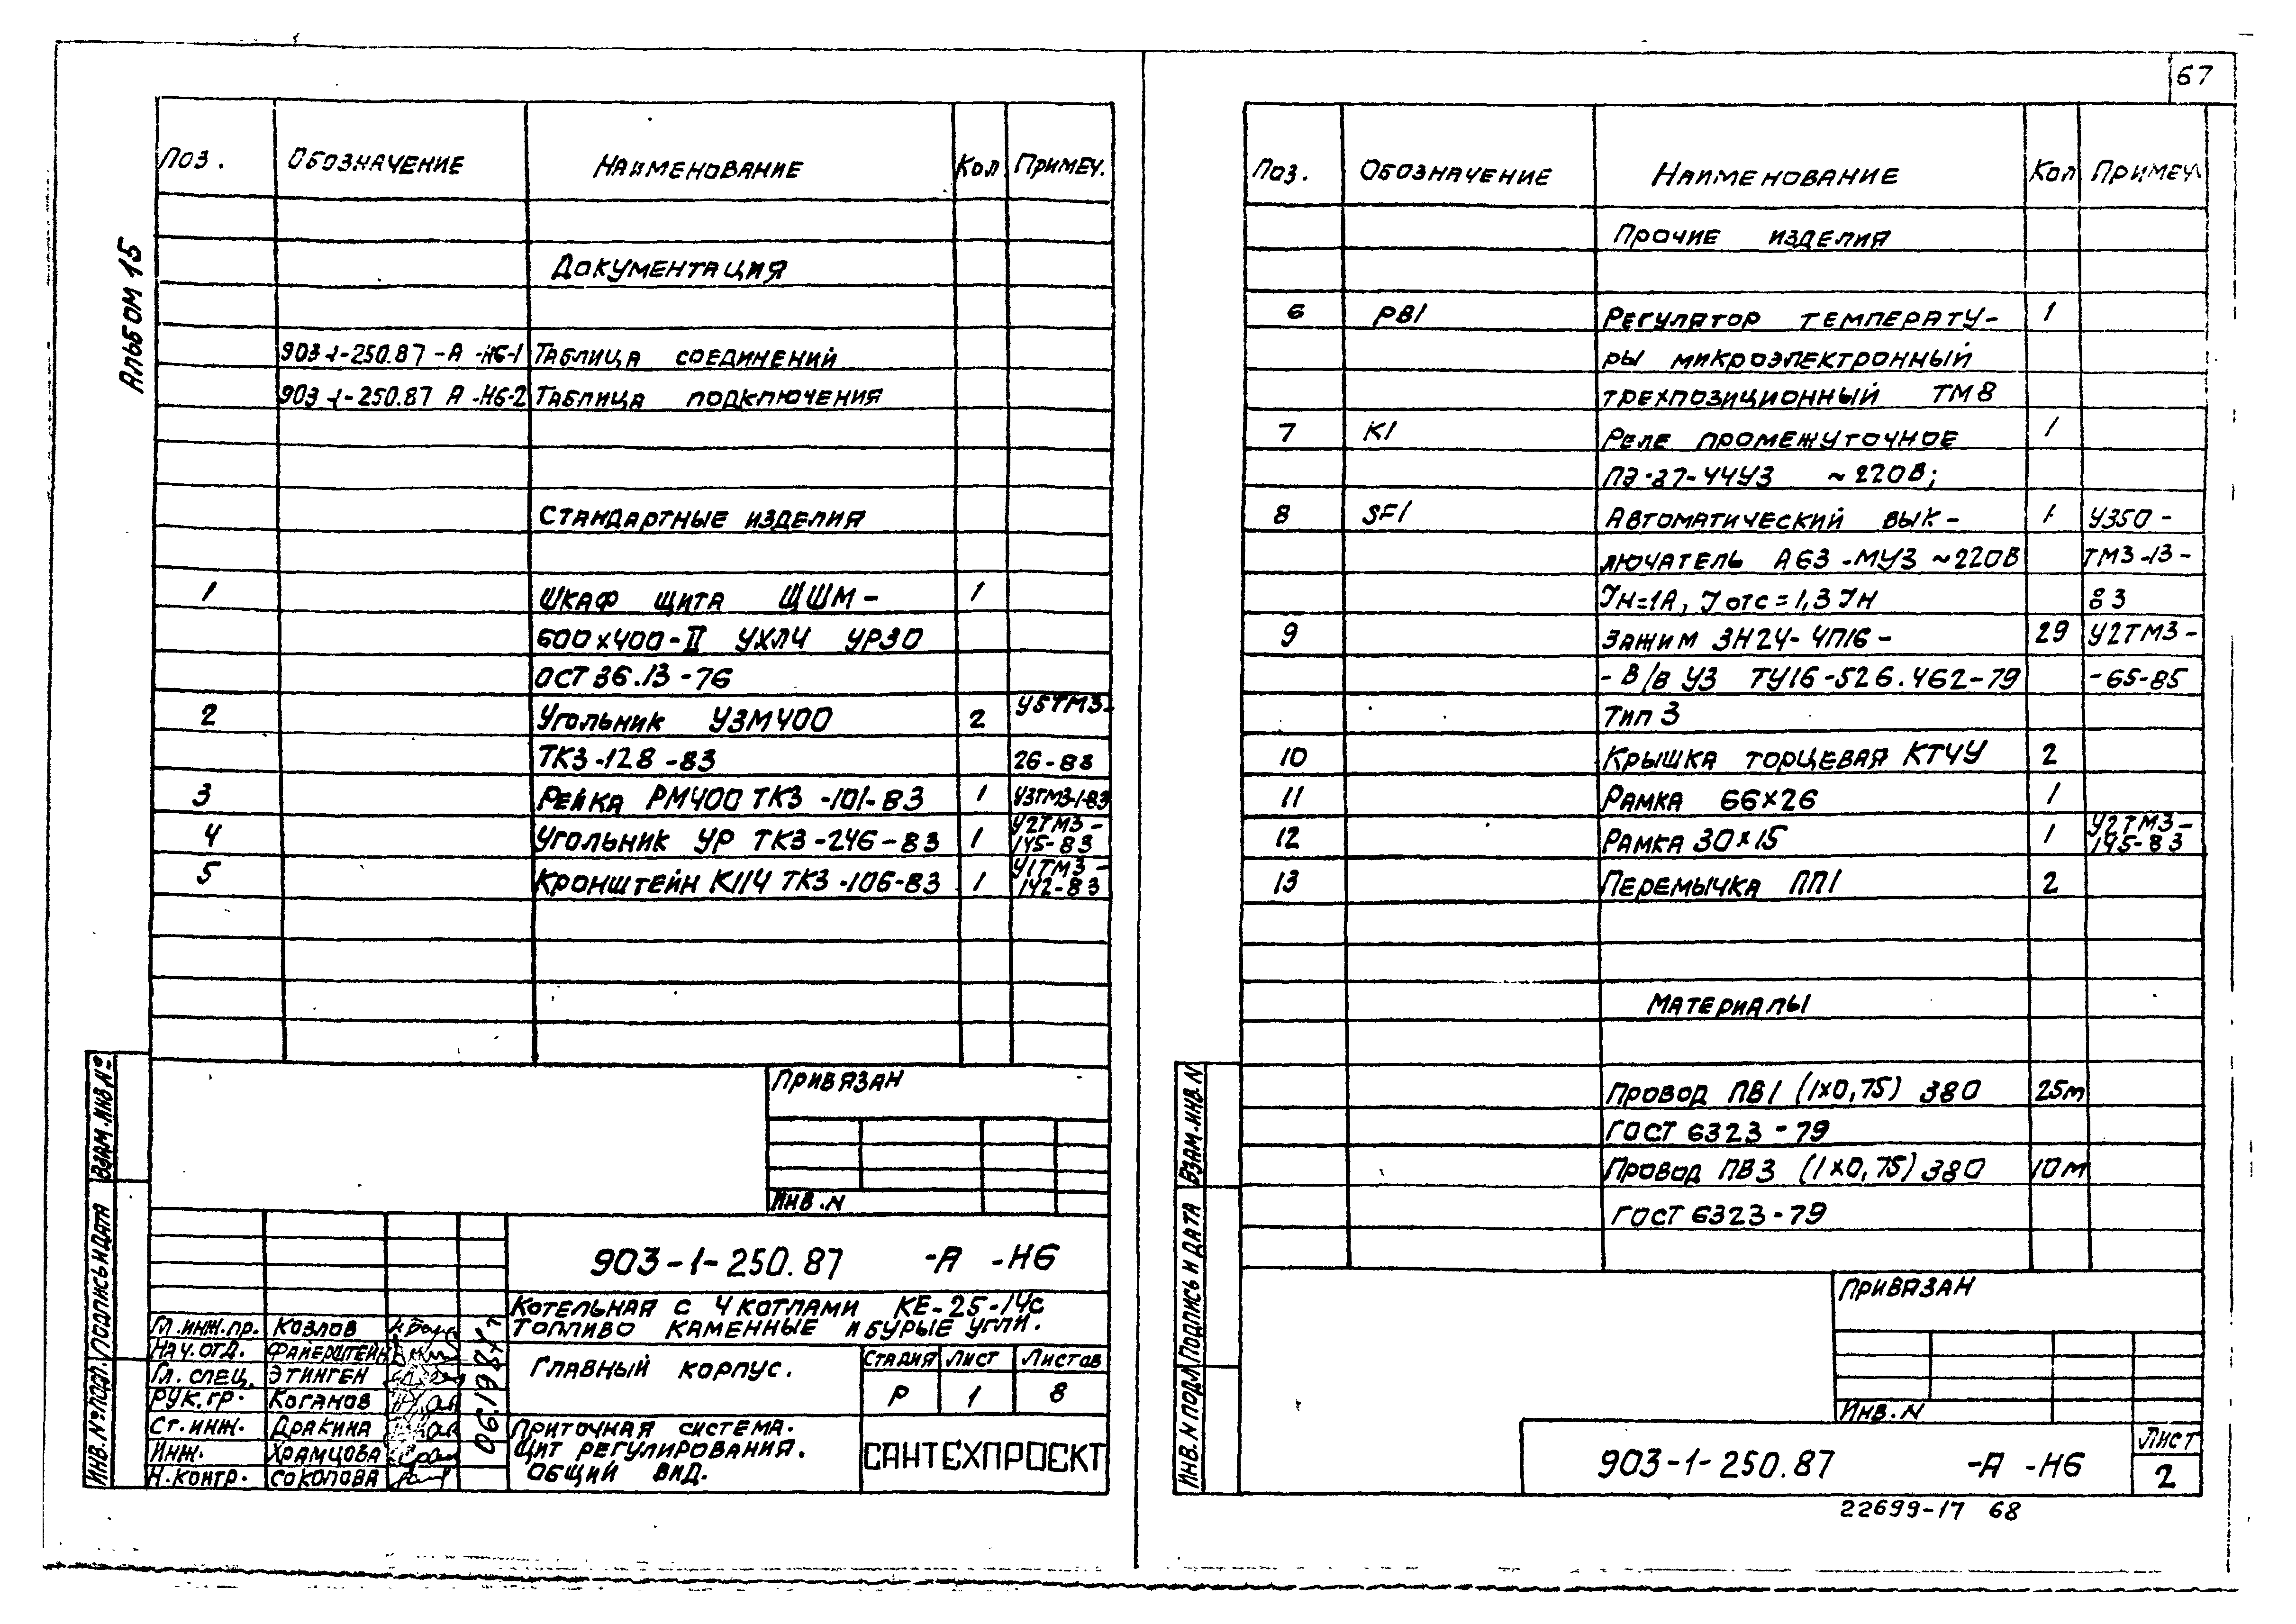 67
Альбом 15
Поз. Обозначение Наименование Кол Примеч.
Документация
903-1-250.87-А-Н6-1 Таблица соединений
903-1-250.87 А-Н6-2 Таблица подключения
Стандартные изделия
1 Шкаф щита ЩШМ- 1
600х400-II УХЛ4 УР30
ОСТ 36.13-76
2 Угольник УЗМ400 2 У5ТМ3-
ТК3-128-83 26-83
3 Рейка РМ400 ТК3-101-83 1 У3ТМ3-1-83
4 Угольник УР ТК3-246-83 1 У2ТМ3-
145-83
5 Кронштейн К114 ТК3-106-83 1 У1ТМ3-
142-83
Привязан
Инв. N
903-1-250.87 -А -Н6
Котельная с 4 котлами КЕ-25-14с
Топливо каменные и бурые угли.
Гл. инж. пр. Козлов
Нач. отд. Файерштейн
Гл. спец. Этинген
Рук. гр. Коганов
Ст. инж. Дракина
Инж. Храмцова
Н. контр. Соколова
06.1987г
Главный корпус.
Стадия Лист Листов
Р 1 8
Приточная система.
Щит регулирования.
Общий вид.
САНТЕХПРОЕКТ
Инв. № подл. Подпись и дата Взам. инв. №
Поз. Обозначение Наименование Кол Примеч.
Прочие изделия
6 РВ1 Регулятор температу- 1
ры микроэлектронный
трехпозиционный ТМ8
7 К1 Реле промежуточное 1
ПЭ-37-44У3 ~220В;
8 SF1 Автоматический вык- 1 У350-
лючатель А63-МУ3 ~220В ТМ3-13-
Iн=1А, Iотс=1,3Iн 83
9 Зажим ЗН24-4П16- 29 У2ТМ3-
-В/В У3 ТУ16-526.462-79 -65-85
Тип 3
10 Крышка торцевая КТ4У 2
11 Рамка 66х26 1
12 Рамка 30х15 1 У2ТМ3-
145-83
13 Перемычка ПП1 2
Материалы
Провод ПВ1 (1х0,75) 380 25м
ГОСТ 6323-79
Провод ПВ3 (1х0,75) 380 10м
ГОСТ 6323-79
Привязан
Инв. N
903-1-250.87 -А -Н6
Лист
2
Инв. N подл Подпись и дата Взам. инв. N
22699-17 68